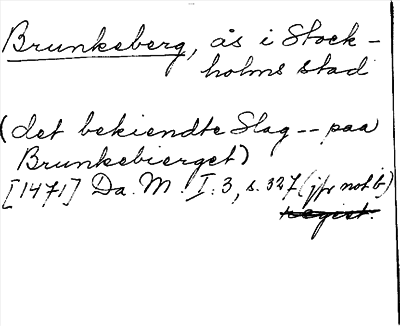 Brunkeberg, ås i Stock-
holms stad
(det bekiendte Slag -- paa
Brunkebierget)
[1471] Da. M. I. 3, s. 327 (jfr not b)
regist.